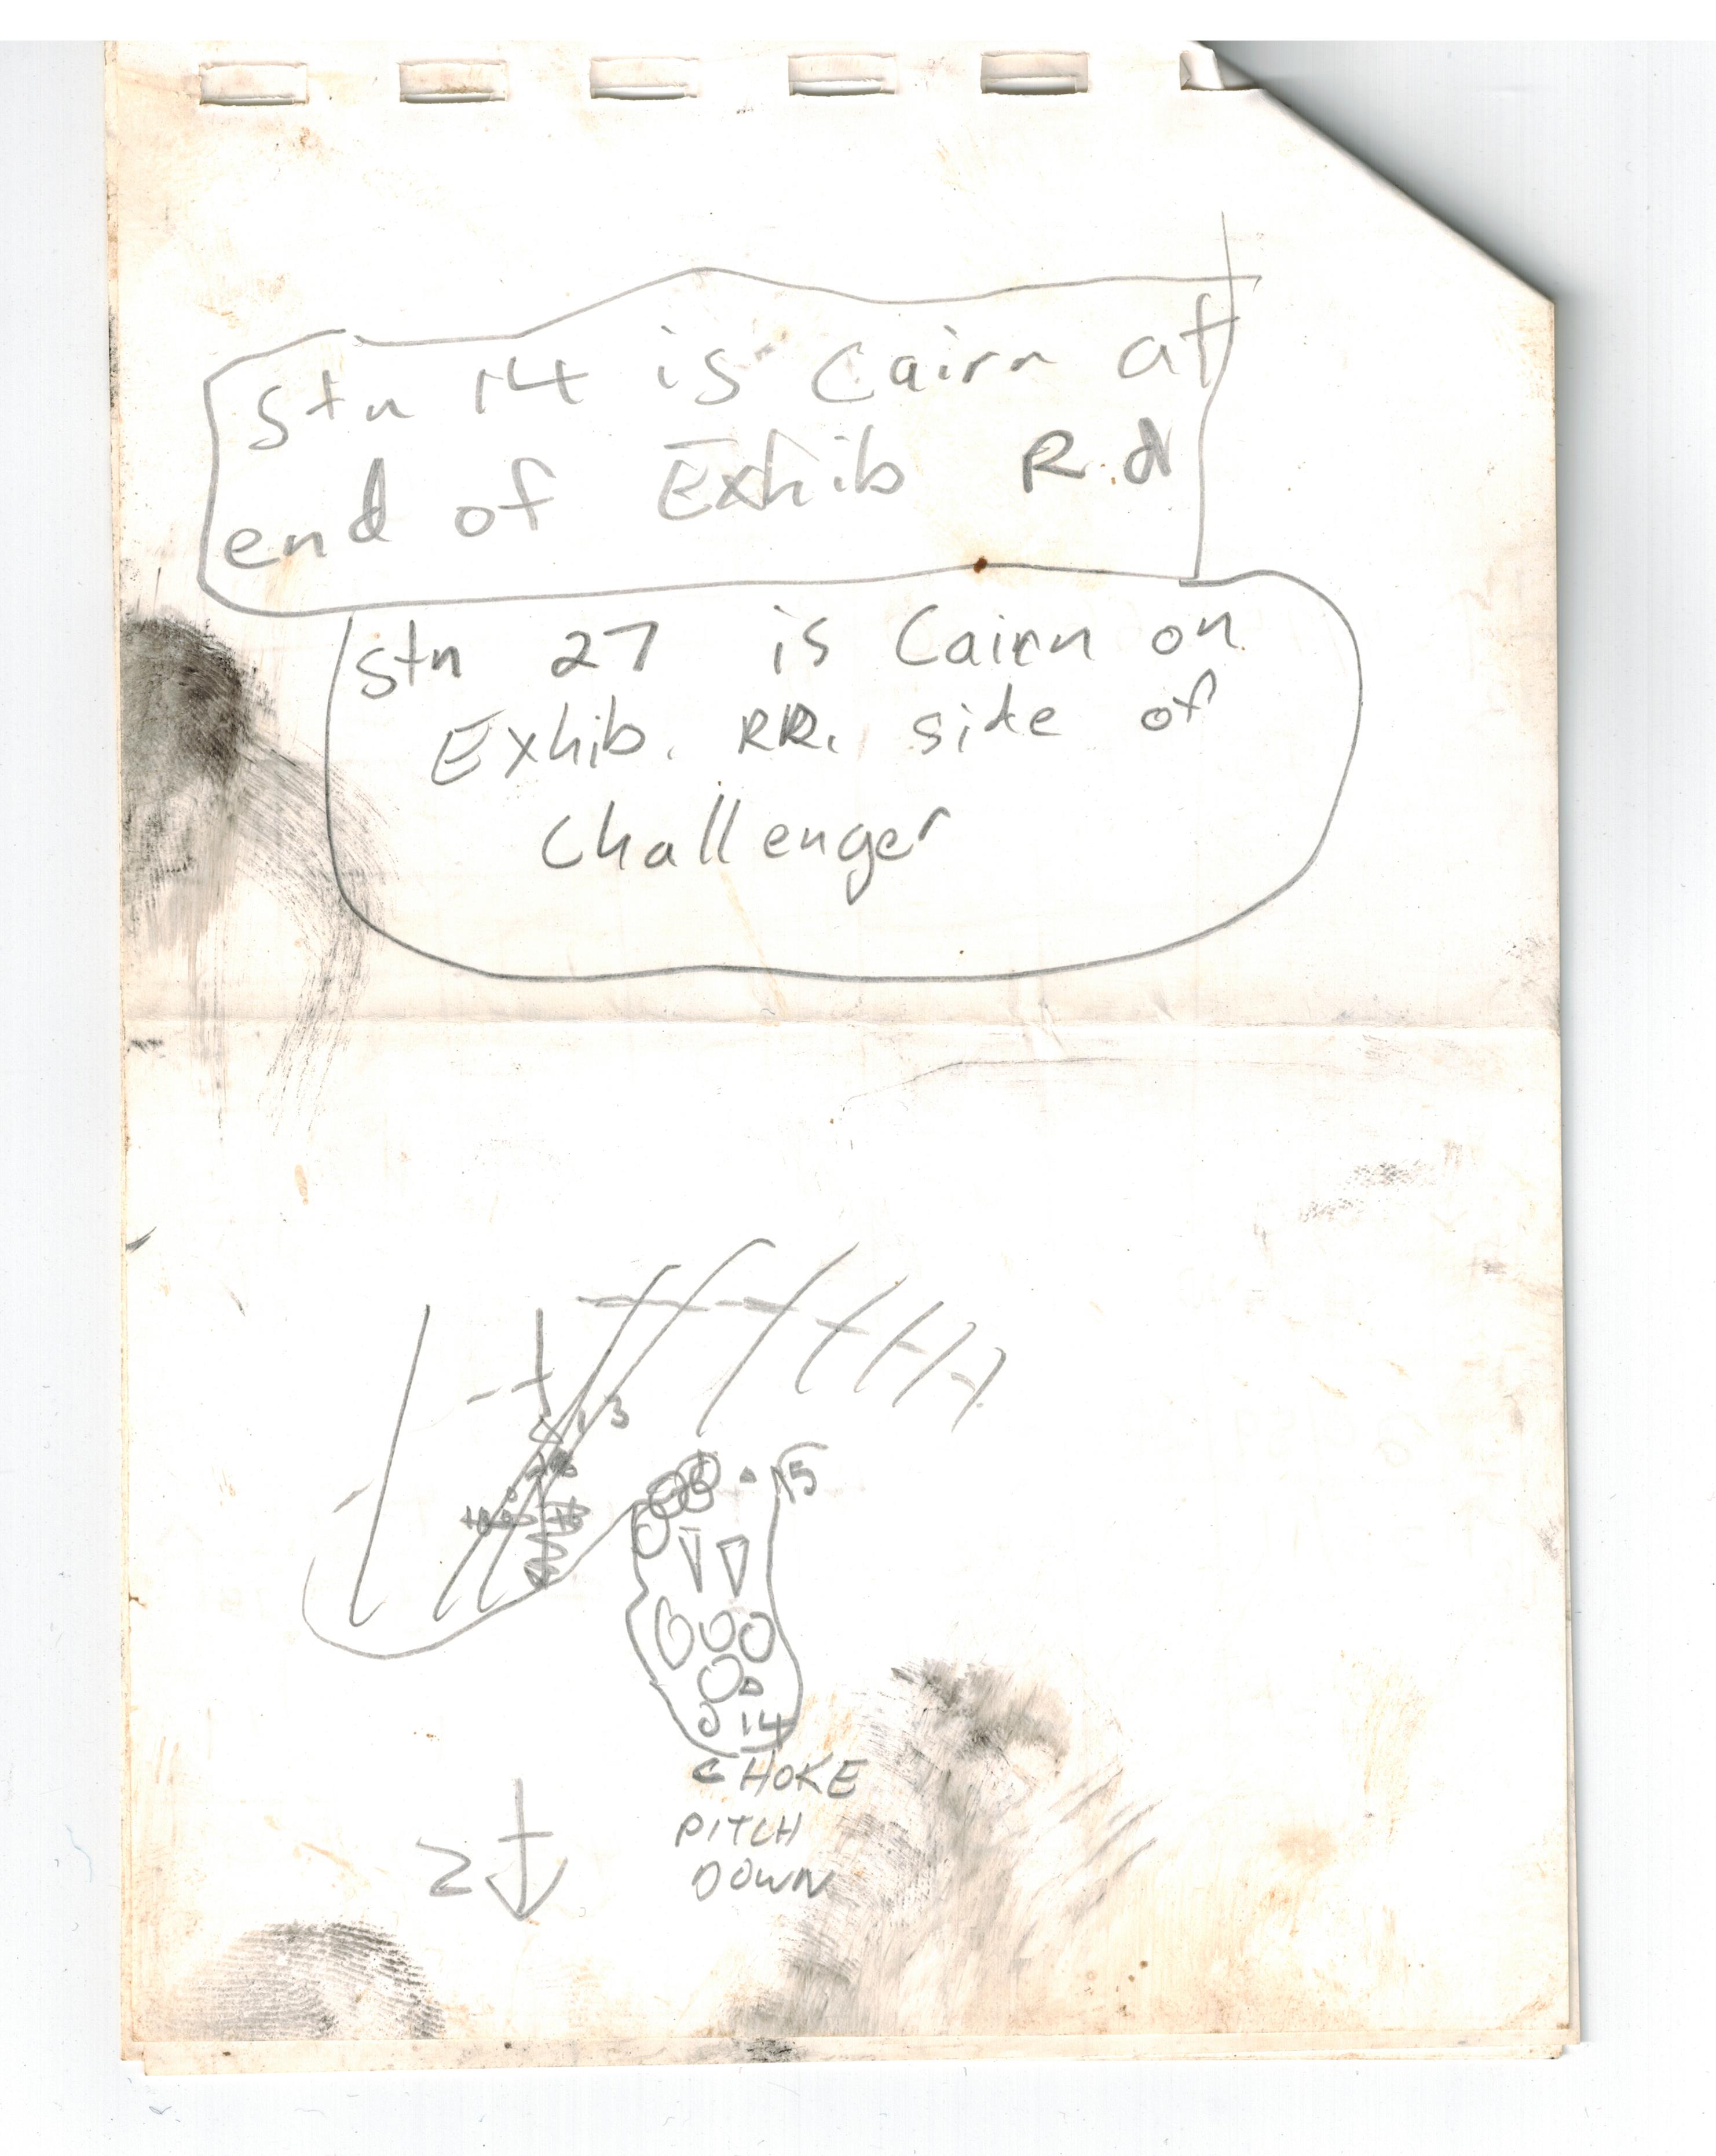 Stn 14 is Cairn at
end of Exhib R.d
Stn 27 is Cairn on
Exhib. RR. side of
Challenger
13
15
14
CHOKE
PITCH
DOWN